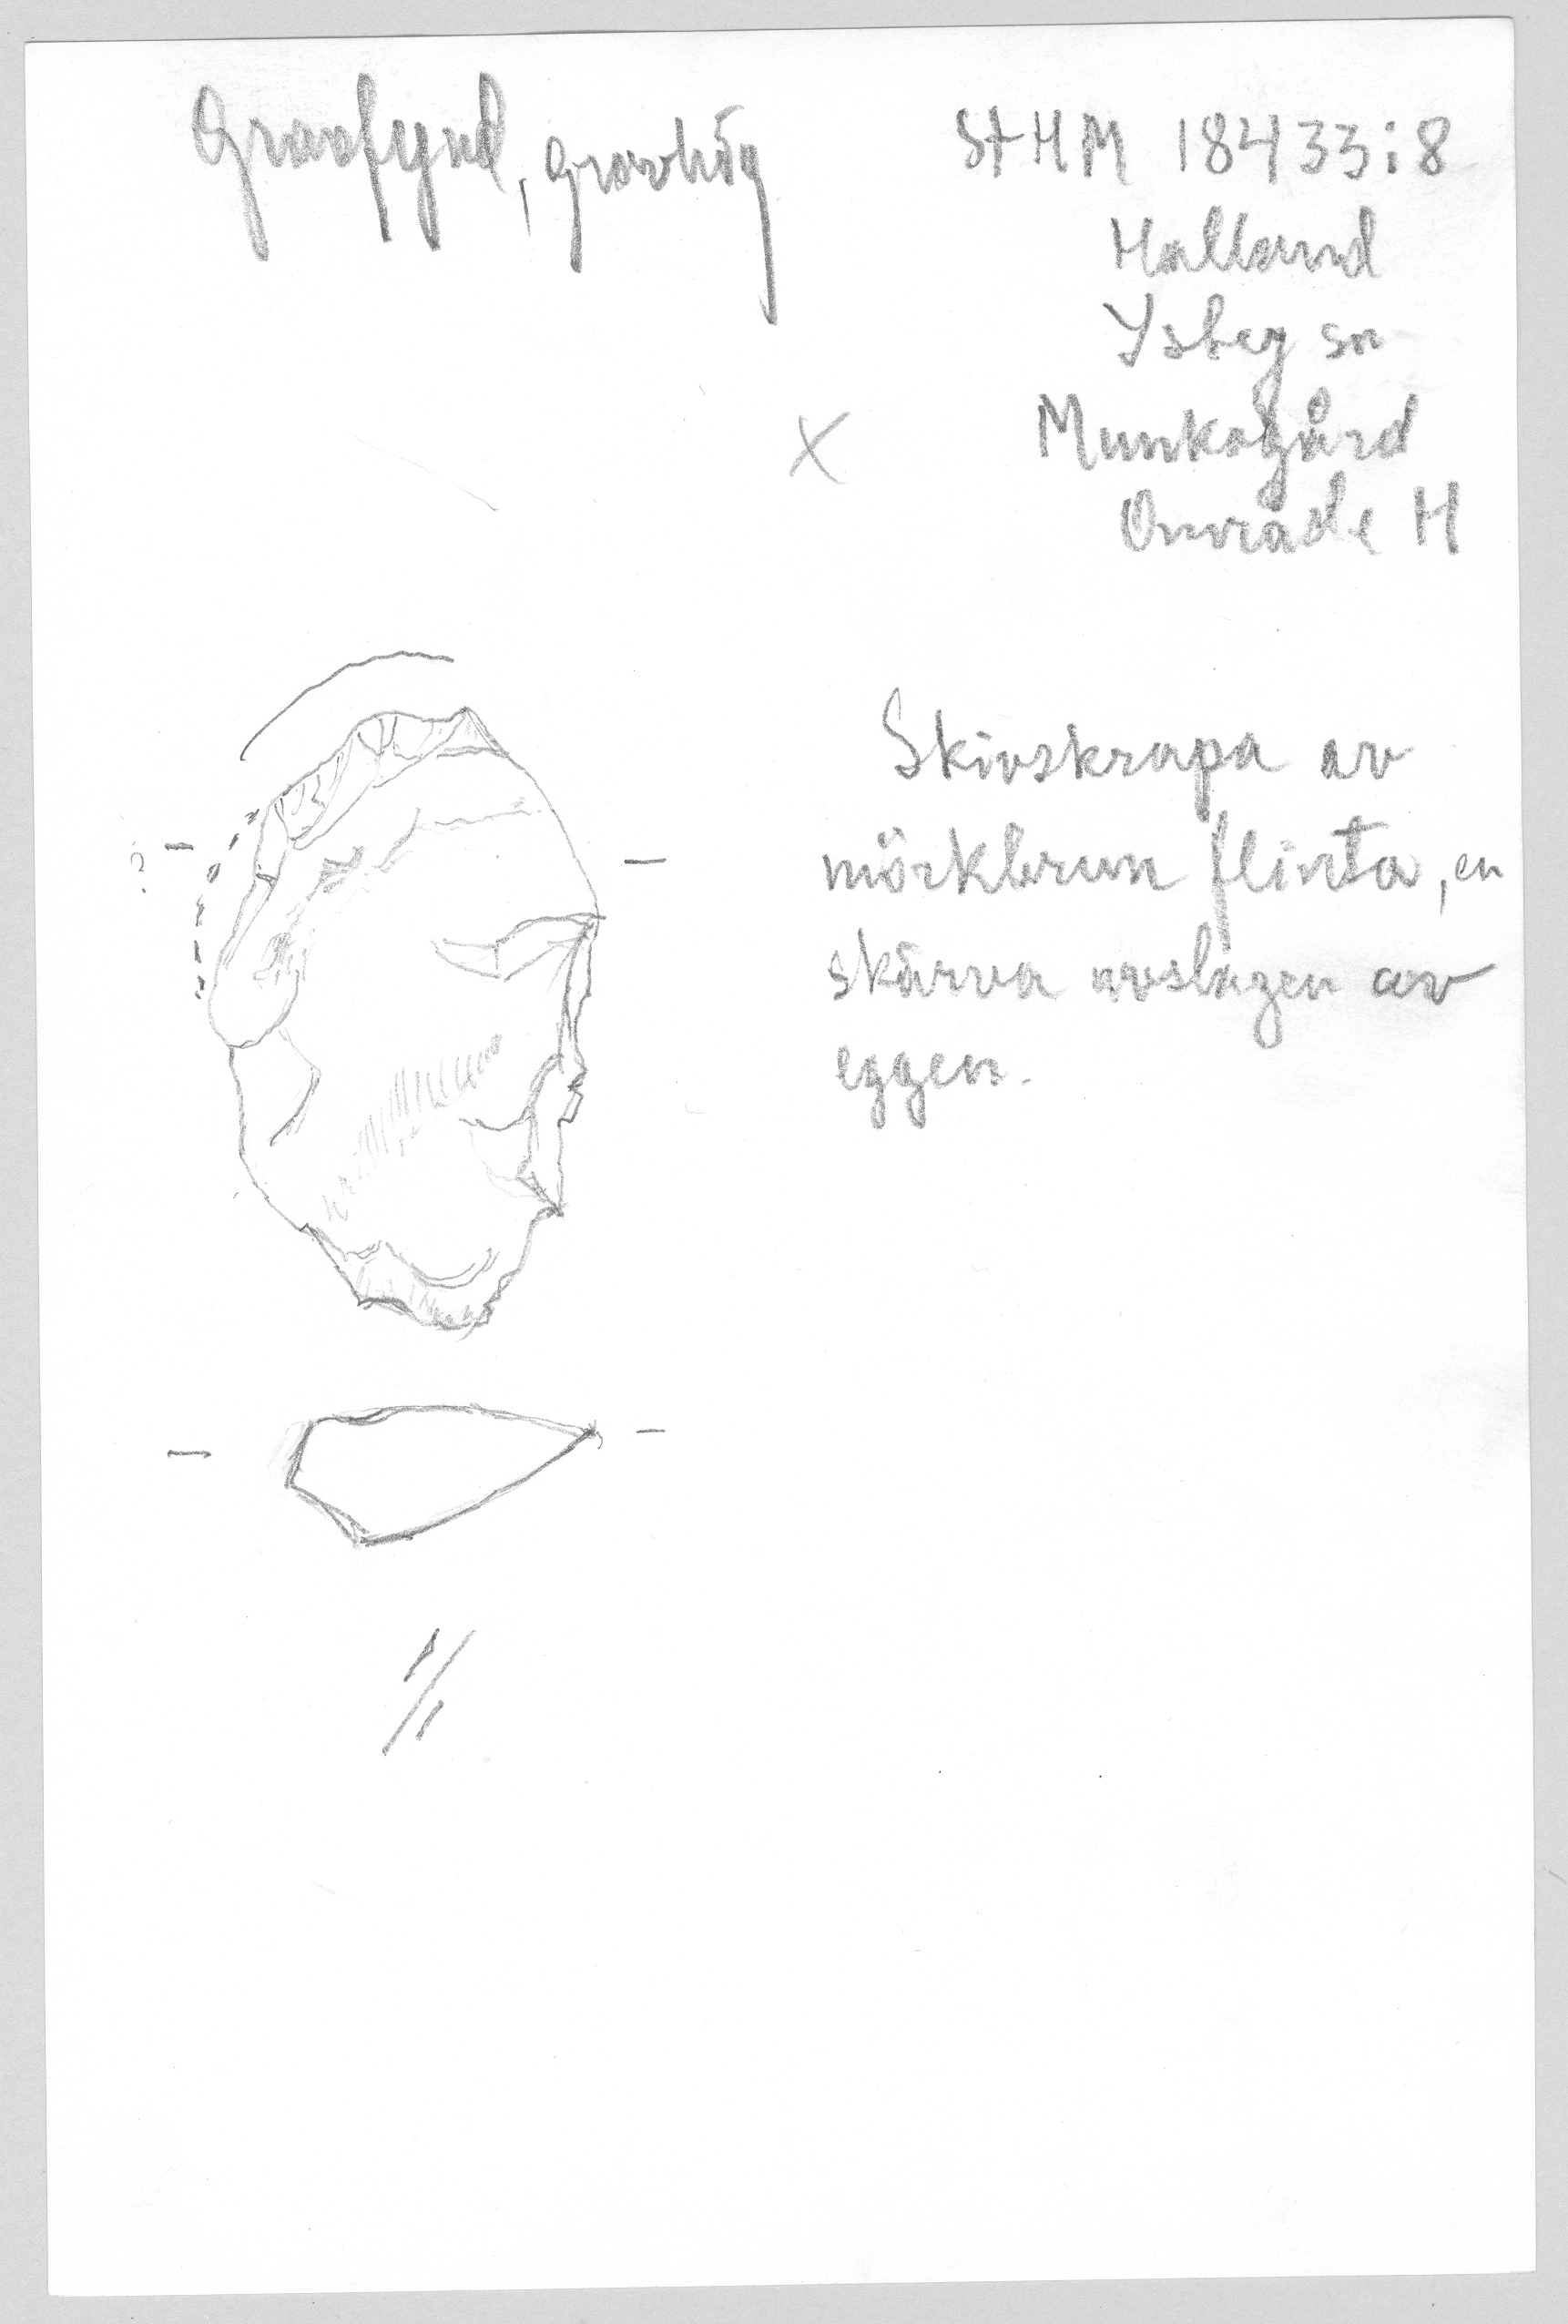 Gravfynd, gravhög
StHM 18433:8
Halland
Ysby sn
X
Munkagård
Område H
Skivskrapa av
mörkbrun flinta, en
skärva avslagen av
eggen.
?
1/1